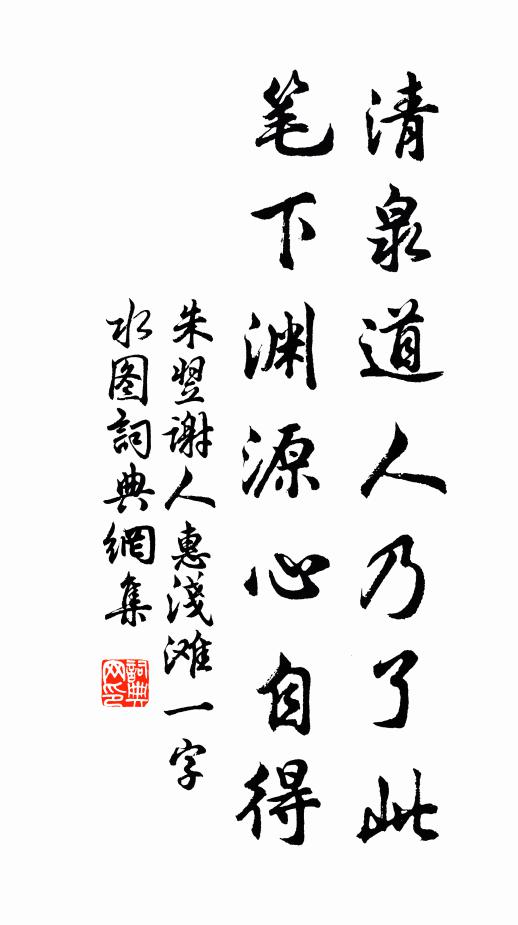 清泉道人乃了此
笔下渊源心自得
朱翌谢人惠浅滩一字
水图詞典網集
詞典网印